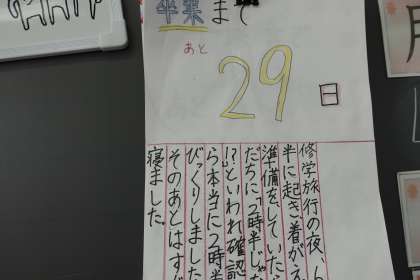 卒業まで
あと
29
日
修学旅行の夜、
半に起き、着がえ
準備をしていたら
だちに「時半じゃ
!?」といわれ確認
ら本当に2時半
びっくりしました
そのあとはすぐ
寝ました。